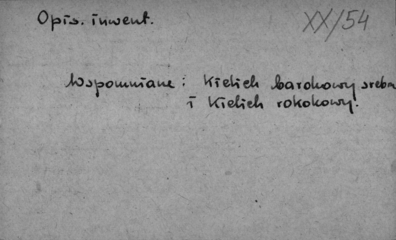 Opis. inwent.
XX/54
Wspomniane: Kielich barokowy srebrn
i Kielich rokokowy.